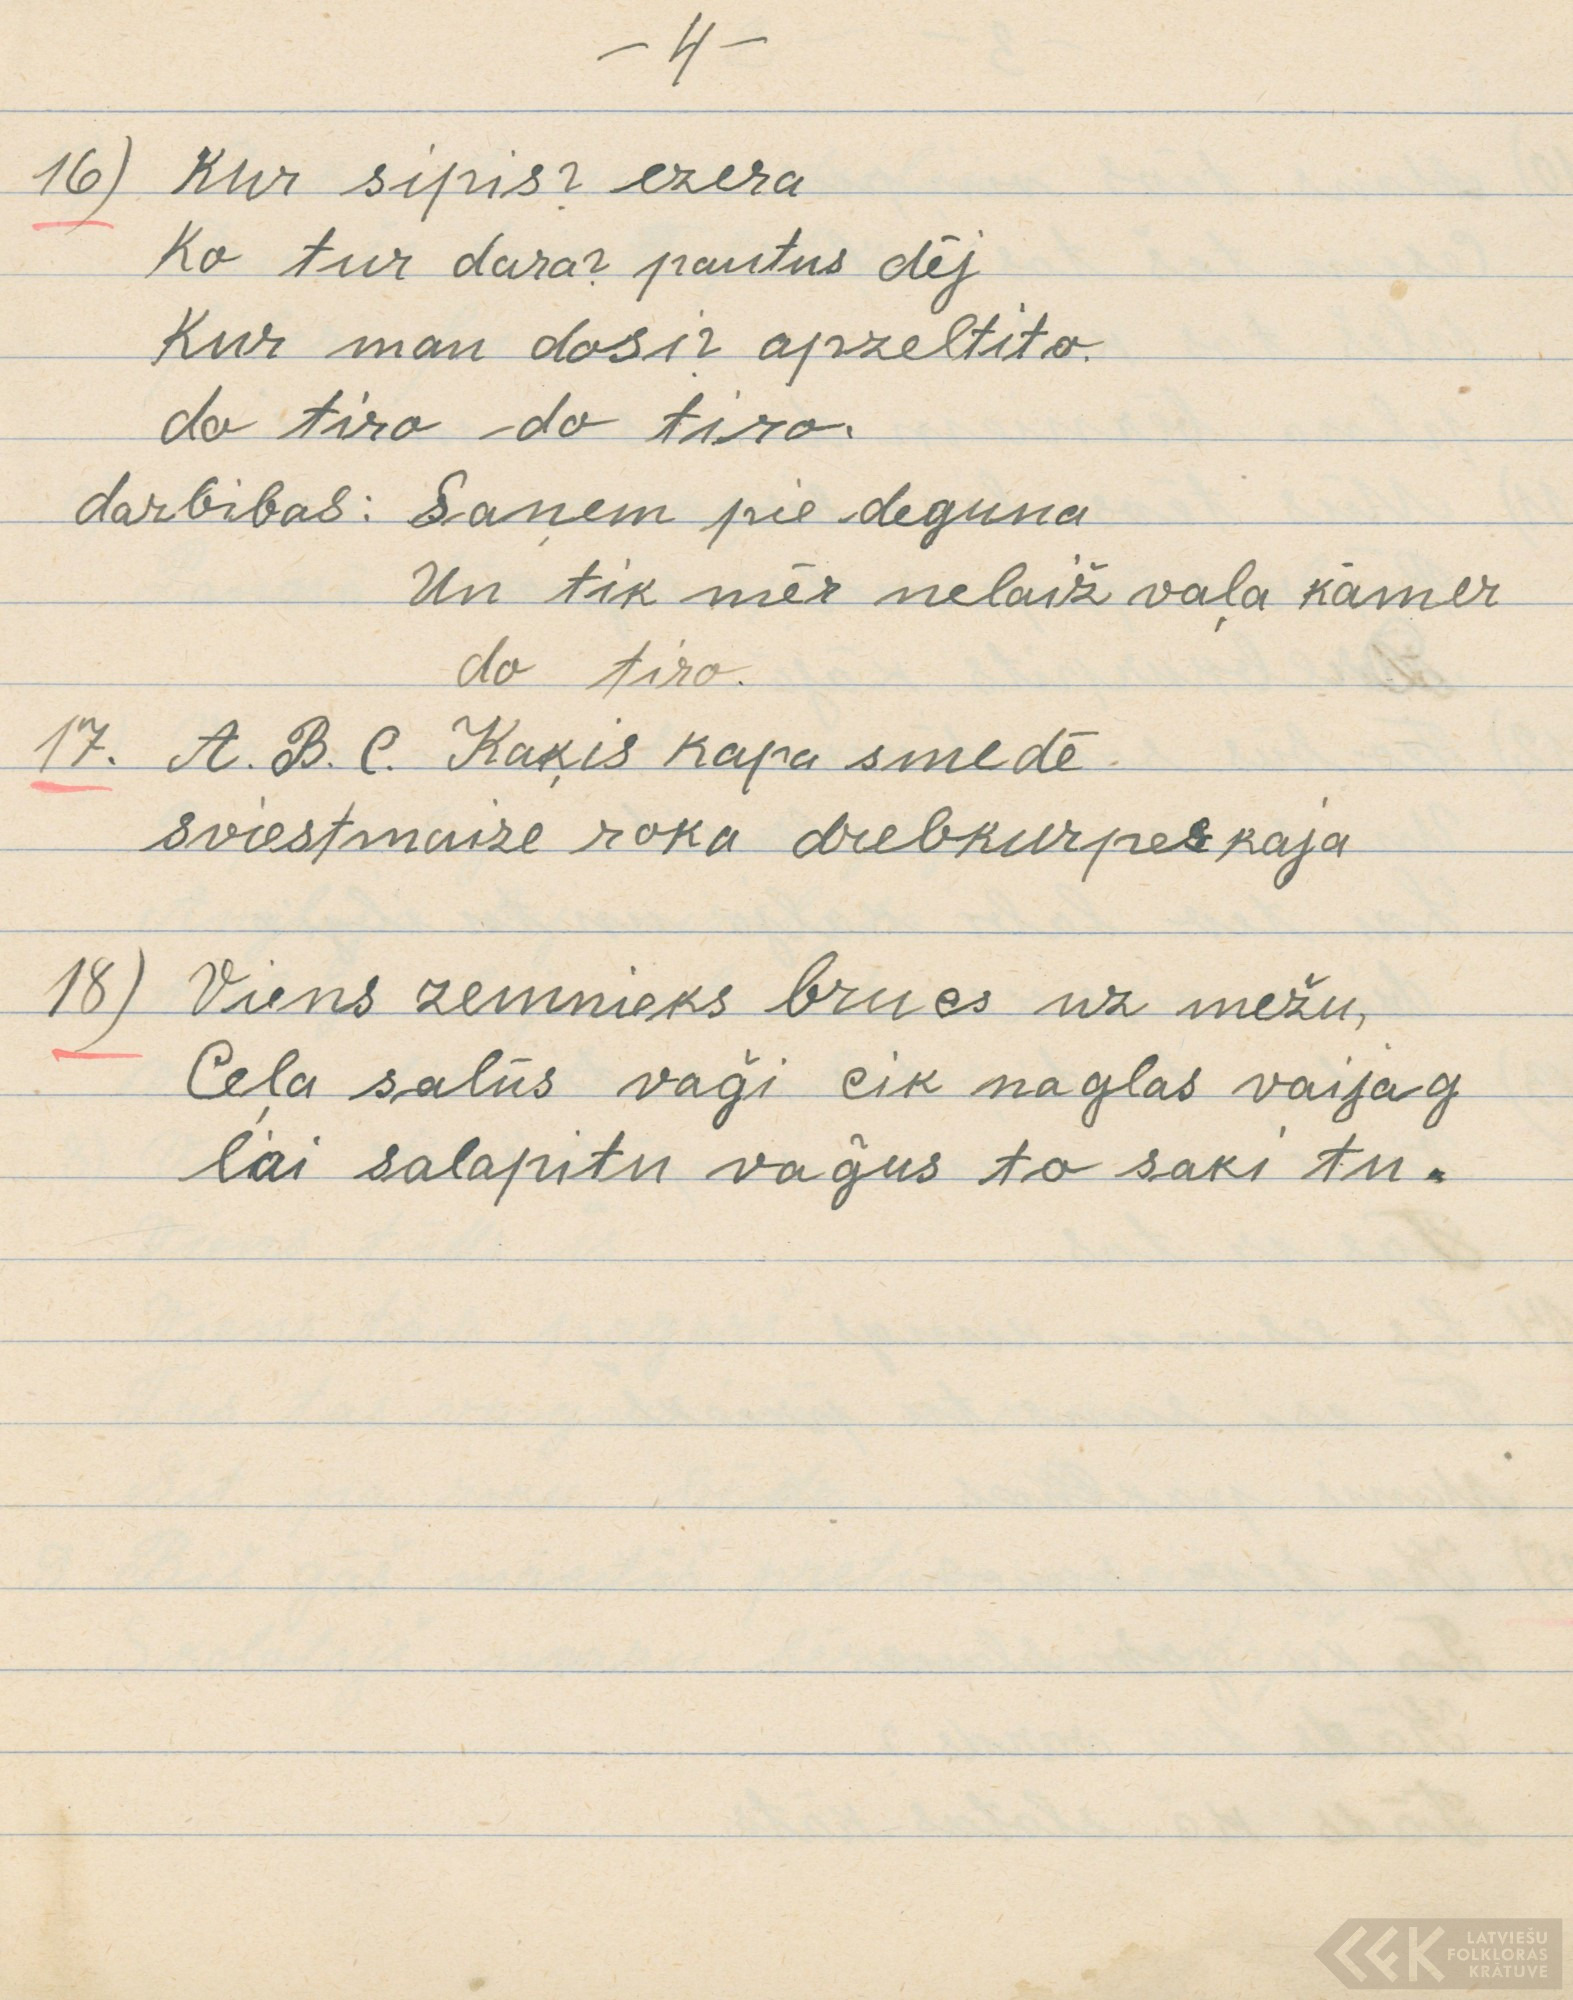 – 4 –
16) Kur sipis? ezera
Ko tur dara? pautus dēj
Kur man dosi? apzeltito.
do tiro do tiro.
darbibas: Saņem pie deguna
Un tik mēr nelaiž vaļa kāmer
do tiro.
17. A. B. C. Kaķis kapa smedē.
sviestmaize roka drebkurpes kaja
18) Viens zemnieks brucs uz mežu,
Ceļa salūs vaģi cik naglas vaijag
lai salapitu vaģus to saki tu.
LATVIEŠU
FOLKLORAS
KRĀTUVE